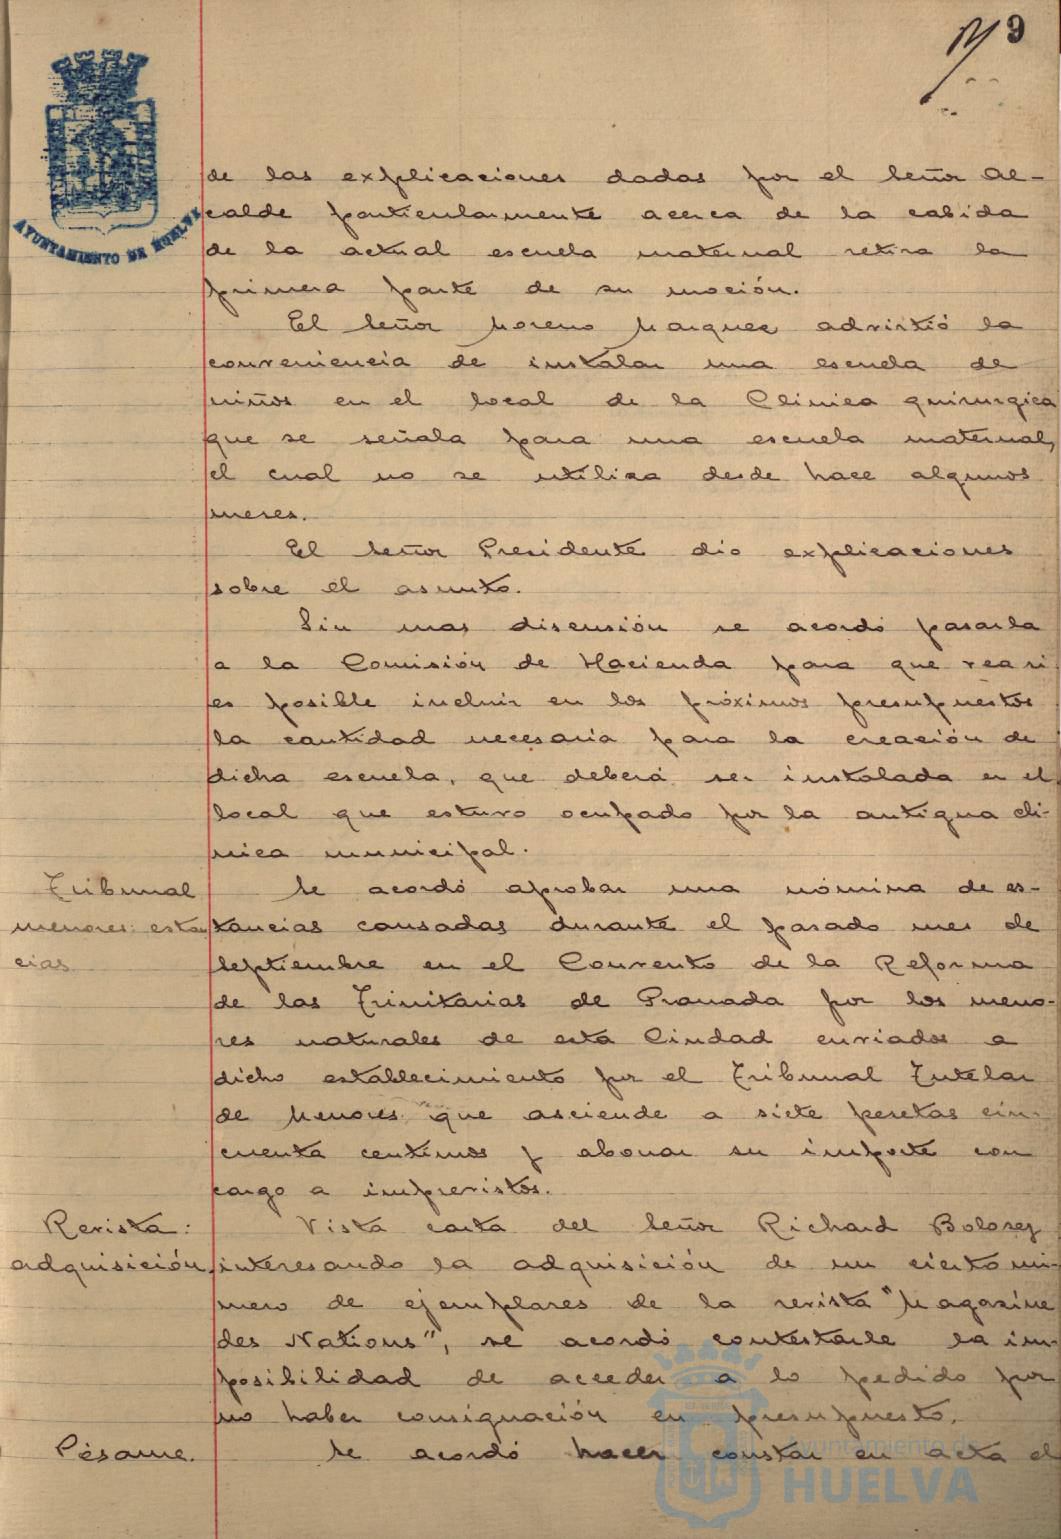 9
AYUNTAMIENTO DE HUELVA
de las explicaciones dadas por el señor Al-
calde particularmente acerca de la cabida
de la actual escuela maternal retira la
primera parte de su moción.
El señor Moreno Marquez advirtió la
conveniencia de instalar una escuela de
niños en el local de la Clinica quirurgica
que se señala para una escuela maternal,
el cual no se utiliza desde hace algunos
meses.
El señor Presidente dio explicaciones
sobre el asunto.
Sin mas discusión se acordó pasarla
a la Comisión de Hacienda para que vea si
es posible incluir en los próximos presupuestos
la cantidad necesaria para la creación de
dicha escuela, que deberá ser instalada en el
local que estuvo ocupado por la antigua clí-
nica municipal.
Tribunal
menores: estan
cias
Se acordó aprobar una nómina de es-
tancias causadas durante el pasado mes de
Septiembre en el Convento de la Reforma
de las Trinitarias de Granada por los meno-
res naturales de esta Ciudad enviados a
dicho establecimiento por el Tribunal Tutelar
de Menores que asciende a siete pesetas cin-
cuenta centimos y abonar su importe con
cargo a imprevistos.
Revista:
adquisición
Vista carta del señor Richard
interesando la adquisición de un cierto nú-
mero de ejemplares de la revista "Magazine
des Nations", se acordó contestarle la im-
posibilidad de acceder a lo pedido por
no haber consignación en presupuesto.
Pésame.
Se acordó hacer constar en acta el
Ayuntamiento de
HUELVA